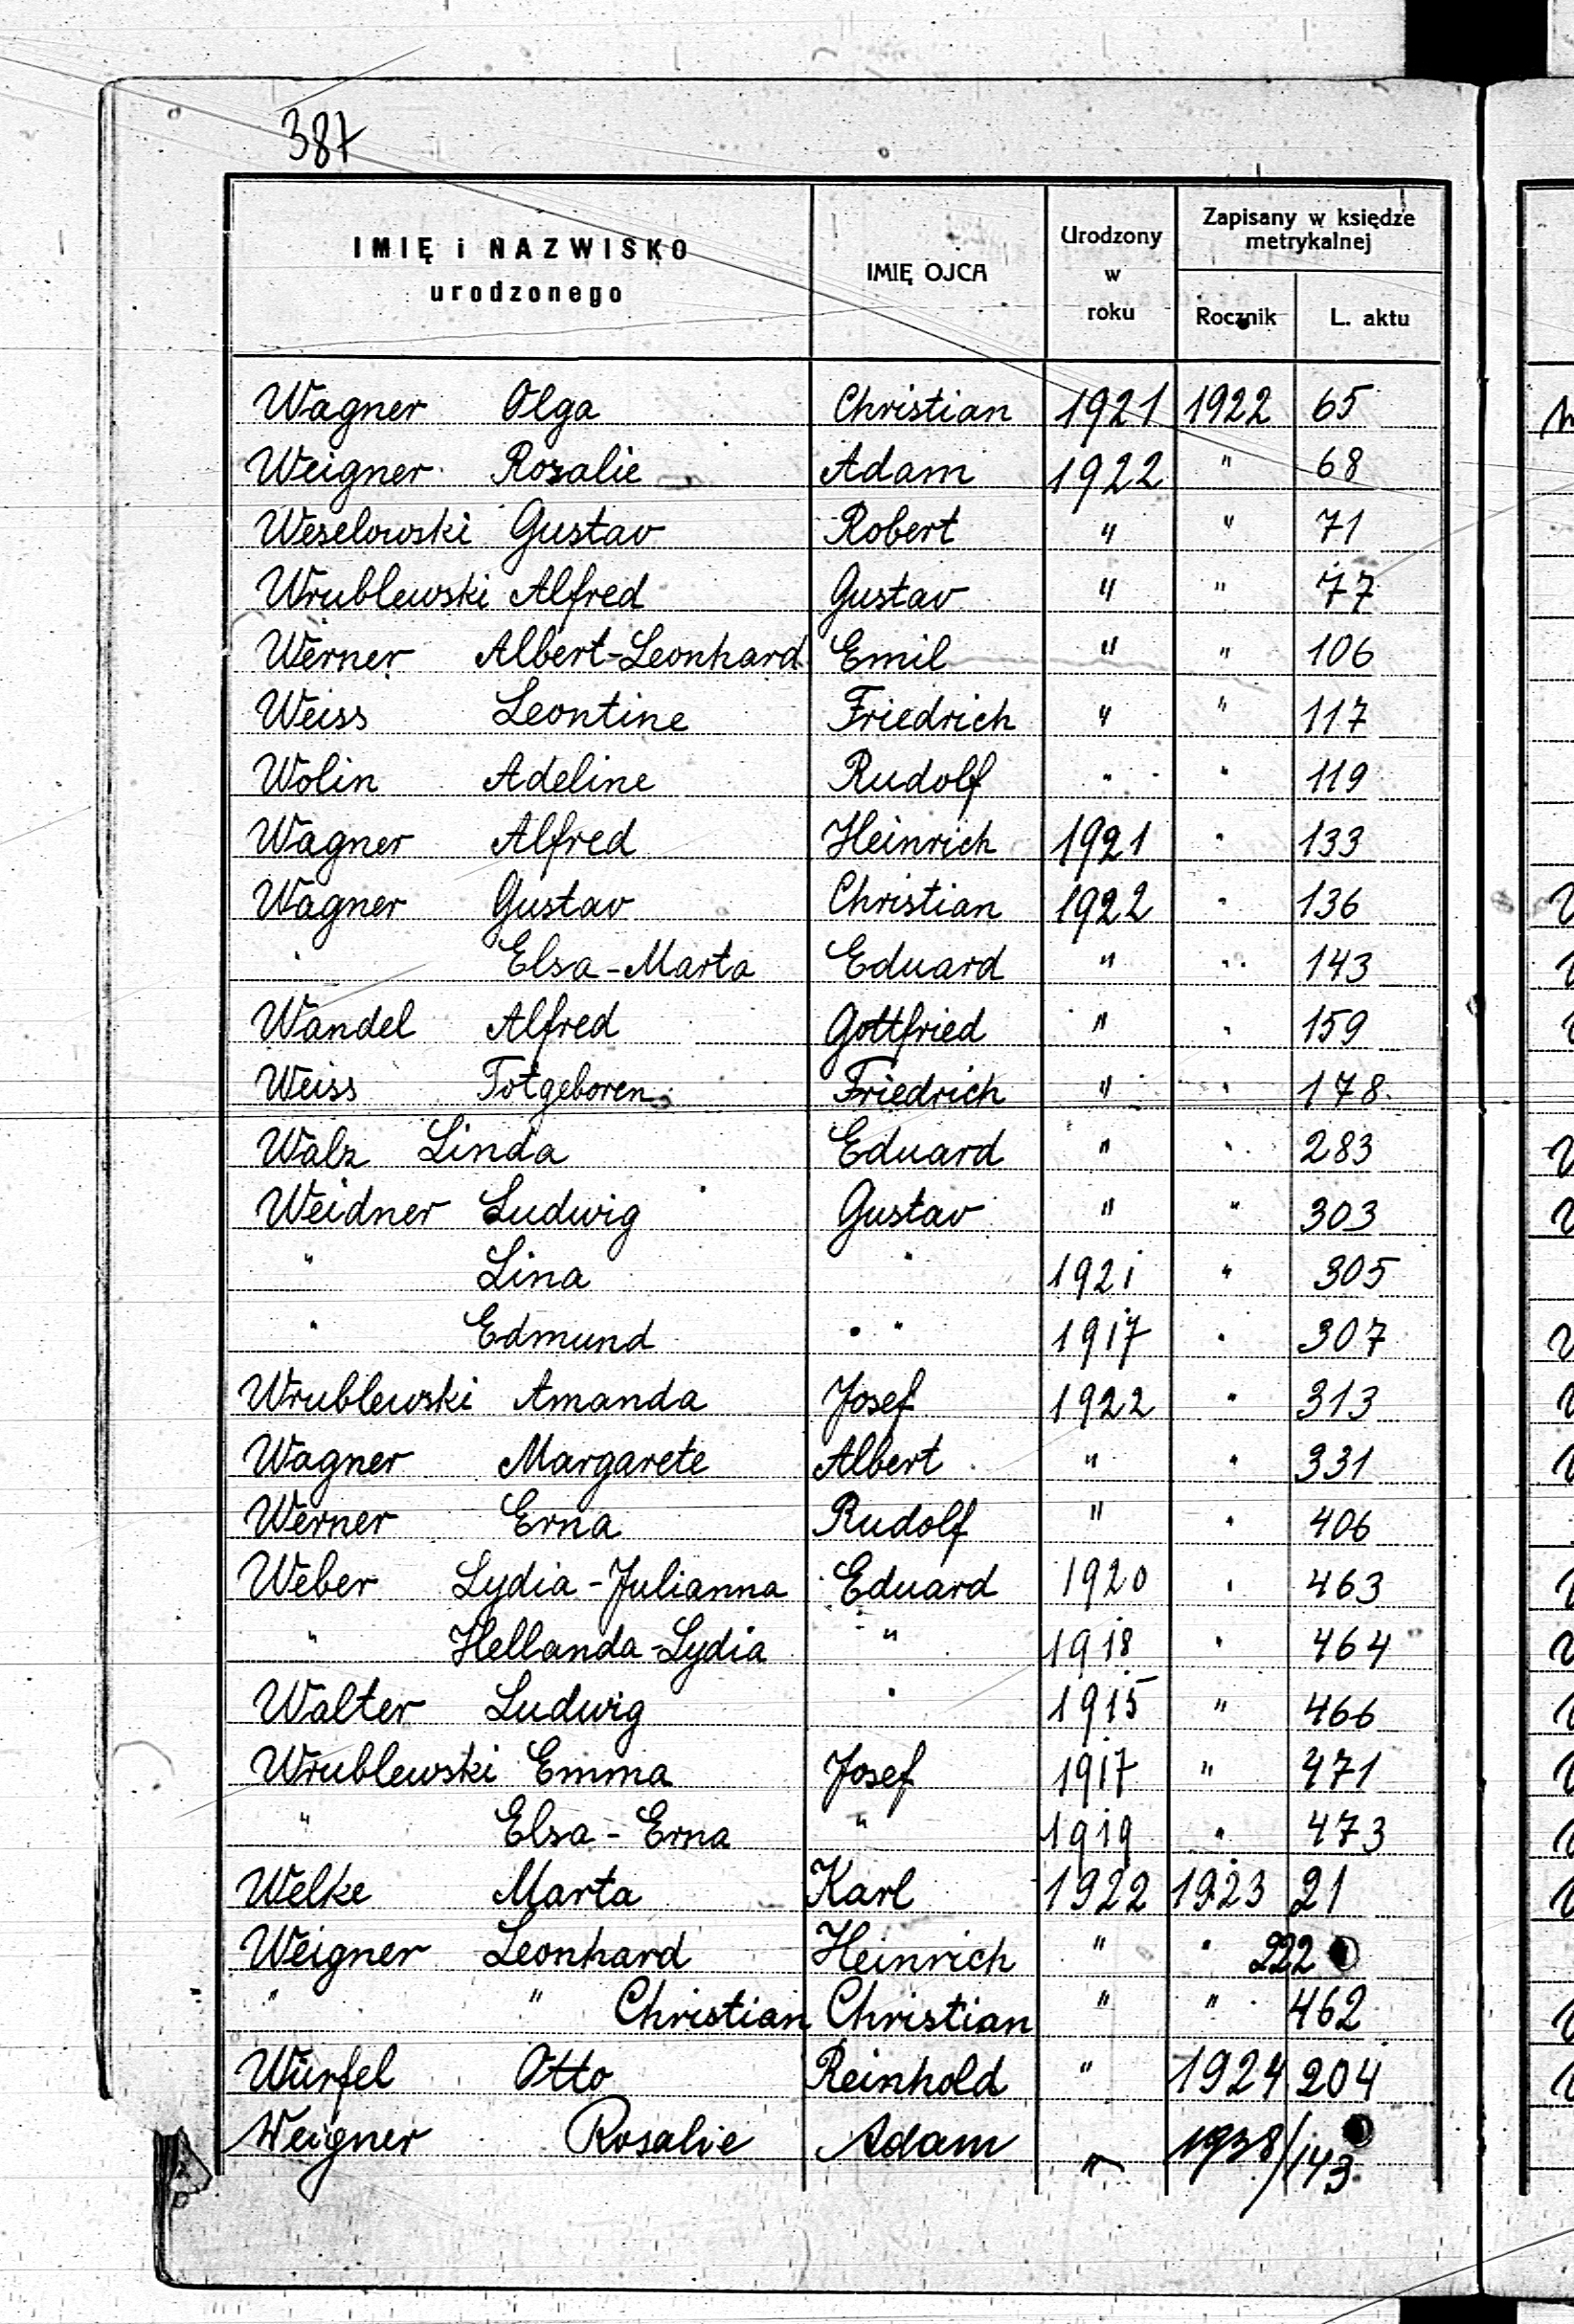 387
IMIĘ i NAZWISKO urodzonego IMIĘ OJCA Urodzony w roku Zapisany w księdze metrykalnej
Rocznik L. aktu
Wagner Olga Christian 1921 1922 65
Weigner Rosalie Adam 1922 " 68
Weselowski Gustav Robert " " 71
Wrublewski Alfred Gustav " " 77
Werner Albert-Leonhard Emil " " 106
Weiss Leontine Friedrich " " 117
Wolin Adeline Rudolf " " 119
Wagner Alfred Heinrich 1921 " 133
Wagner Gustav Christian 1922 " 136
" Elsa-Marta Eduard " " 143
Wandel Alfred Gottfried " " 159
Weiss Totgeboren Friedrich " " 178
Walz Linda Eduard " " 283
Weidner Ludwig Gustav " " 303
" Lina " 1921 " 305
" Edmund " 1917 " 307
Wrublewski Amanda Josef 1922 " 313
Wagner Margarete Albert " " 331
Werner Erna Rudolf " " 406
Weber Lydia-Julianna Eduard 1920 " 463
" Hellanda-Lydia " 1918 " 464
Walter Ludwig " 1915 " 466
Wrublewski Emma Josef 1917 " 471
" Elsa-Erna " 1919 " 473
Welke Marta Karl 1922 1923 21
Weigner Leonhard Heinrich " " 222
" " Christian Christian " " 462
Würfel Otto Reinhold " 1924 204
Weigner Rosalie Adam " 1938/143